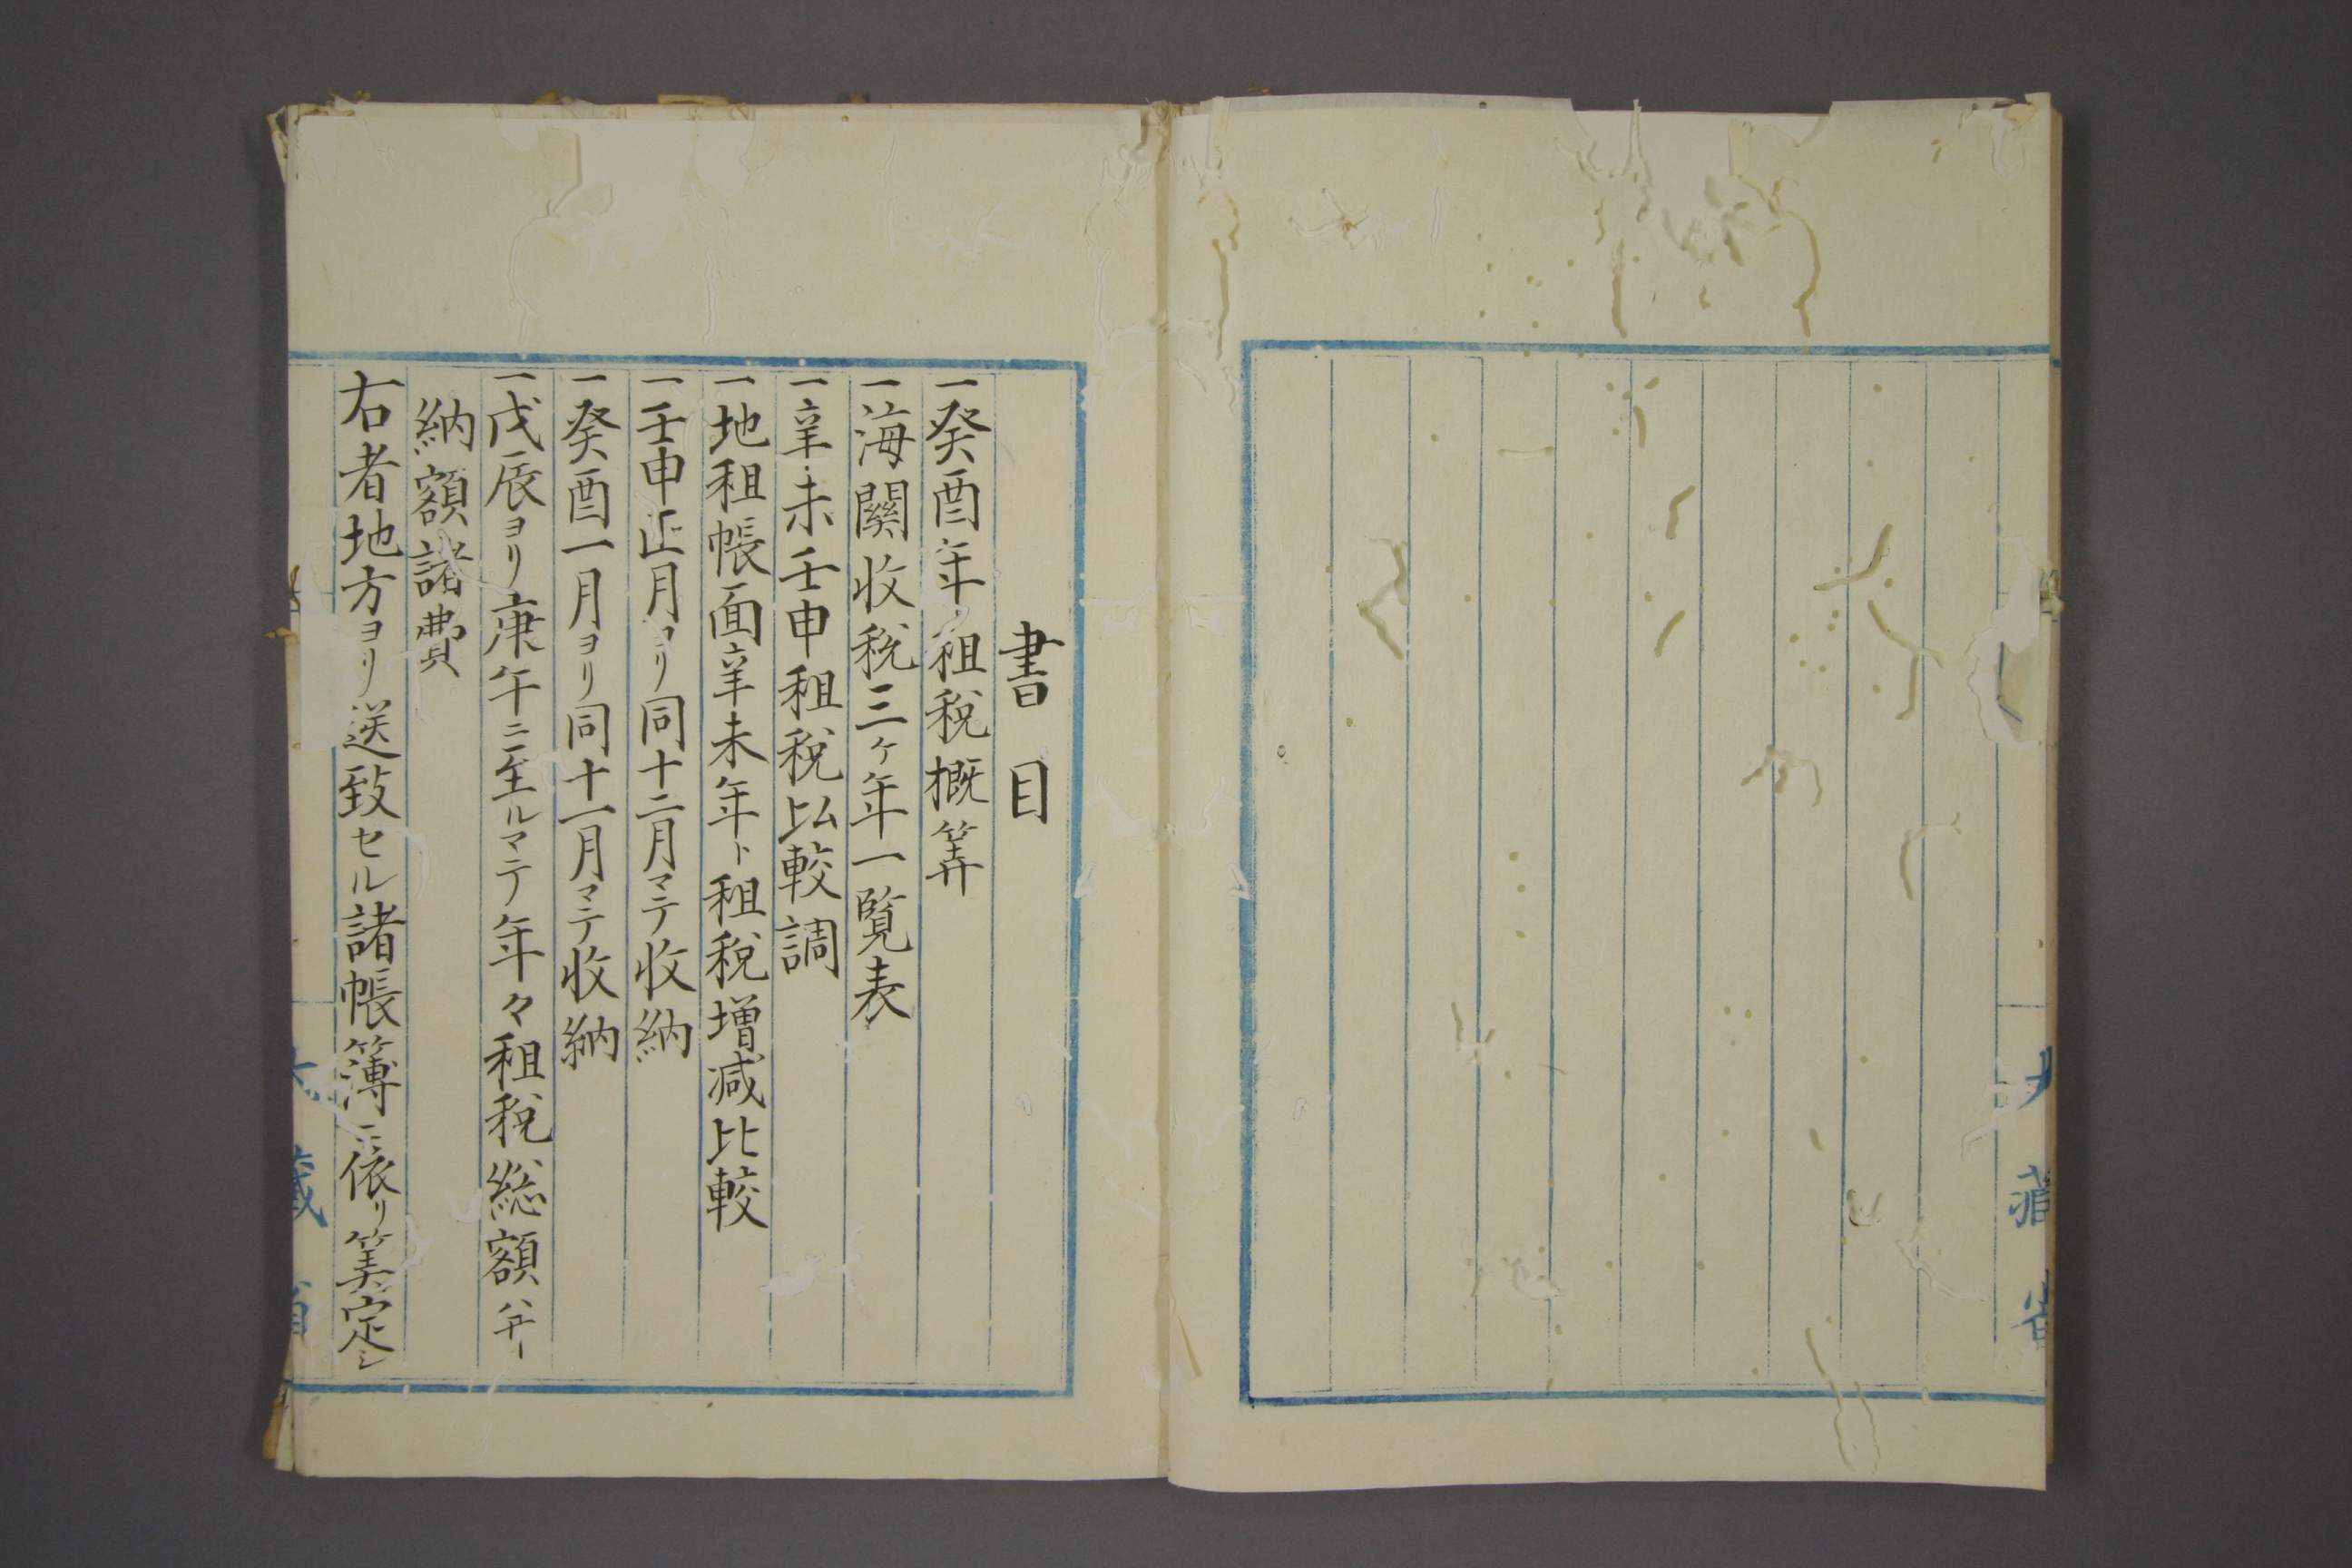 大藏省
書目
一癸酉年ノ租税概筭
一海關收税三ヶ年一覧表
一辛未壬申租税比較調
一地租帳面辛未年ト租税増减比較
一壬申正月ヨリ同十二月マテ收納
一癸酉一月ヨリ同十一月マテ收納
一戊辰ヨリ庚午ニ至ルマテノ年々租税総額
納額諸費
右者地方ヨリ送致セル諸帳簿ニ依リ筭定シ
大藏省